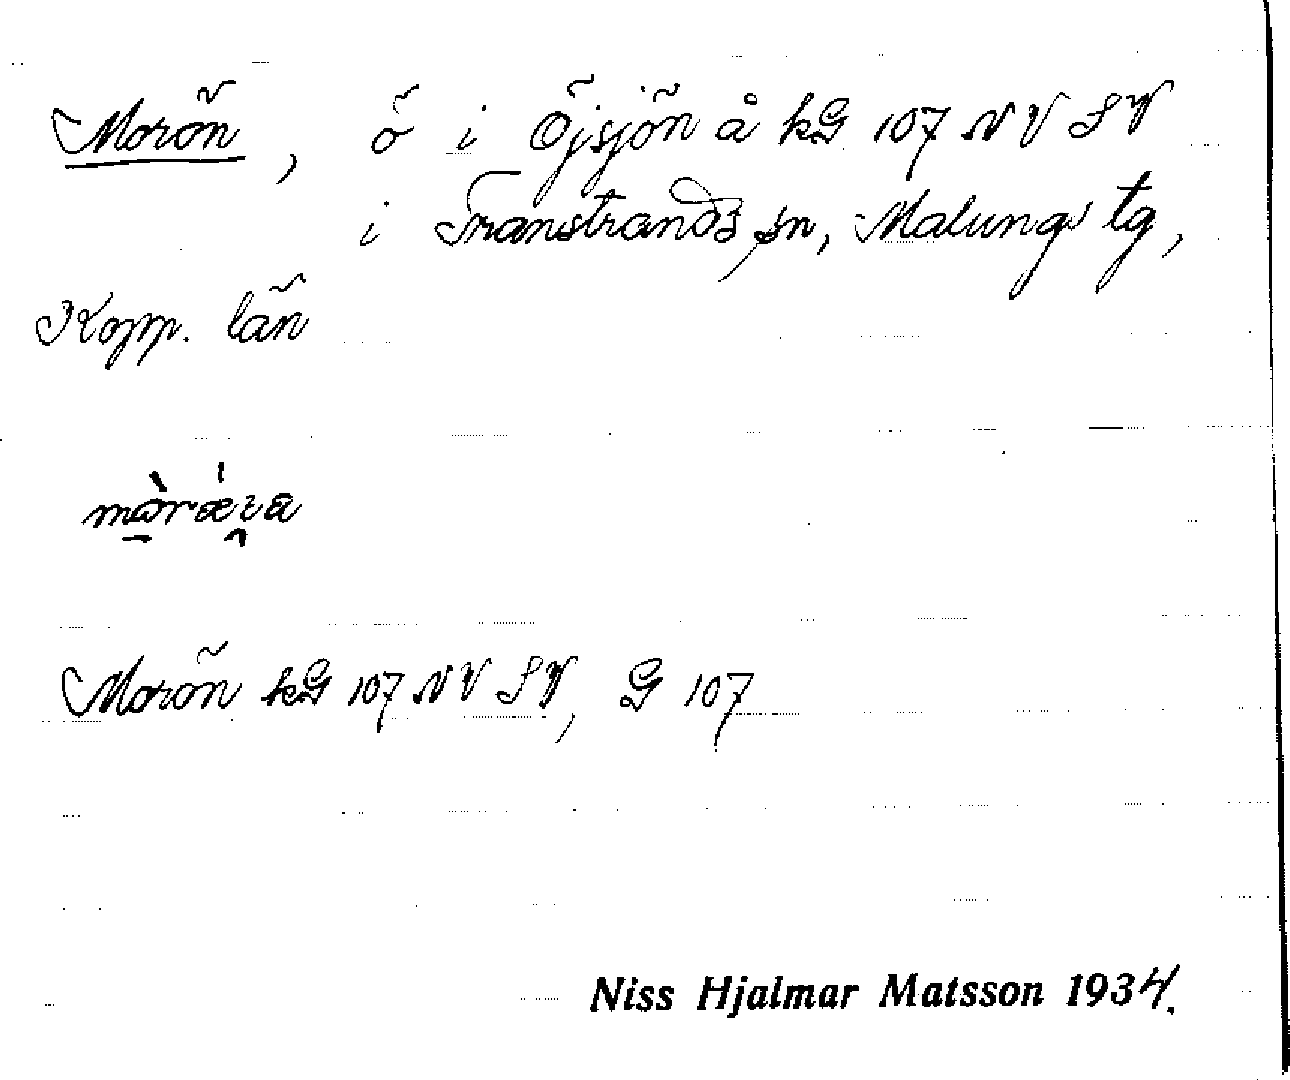 Morön, ö i Öjsjön å kG 107 NV SV
i Transtrands sn, Malungs tg,
Kopp. län
Morön kG 107 NV SV, G 107
Niss Hjalmar Matsson 1934.